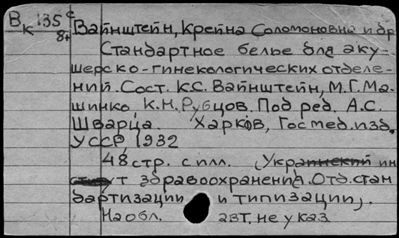 Вк 135е
8+
Вайнштейн, Крейна Соломоновна и др
Стандартное белье для аку-
шерско-гинекологических отделе-
ний. Сост. К.С. Вайнштейн, М.Г. Ма-
шинко К.Н. Рубцов. Под ред. А.С.
Шварца. Харков, Госмед.изд.
УССР, 1932
48 стр. с илл. (Украинский ин
ститут здравоохранения. Отд. стан
дартизации и типизации).
На обл. авт. не указ